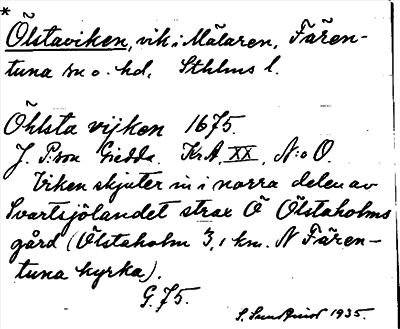 *
Ölstaviken, vik i Mälaren, Fären-
tuna sn o. hd, Sthlms l.
Öhlsta vijken 1675.
J. P:son Giedda. Kr.A, XX, N:o O.
Viken skjuter in i norra delen av
Svartsjölandet strax Ö Ölstaholms
gård (Ölstaholm 3,1 km. N Fären-
tuna kyrka).
G. 75.
S. 1935.